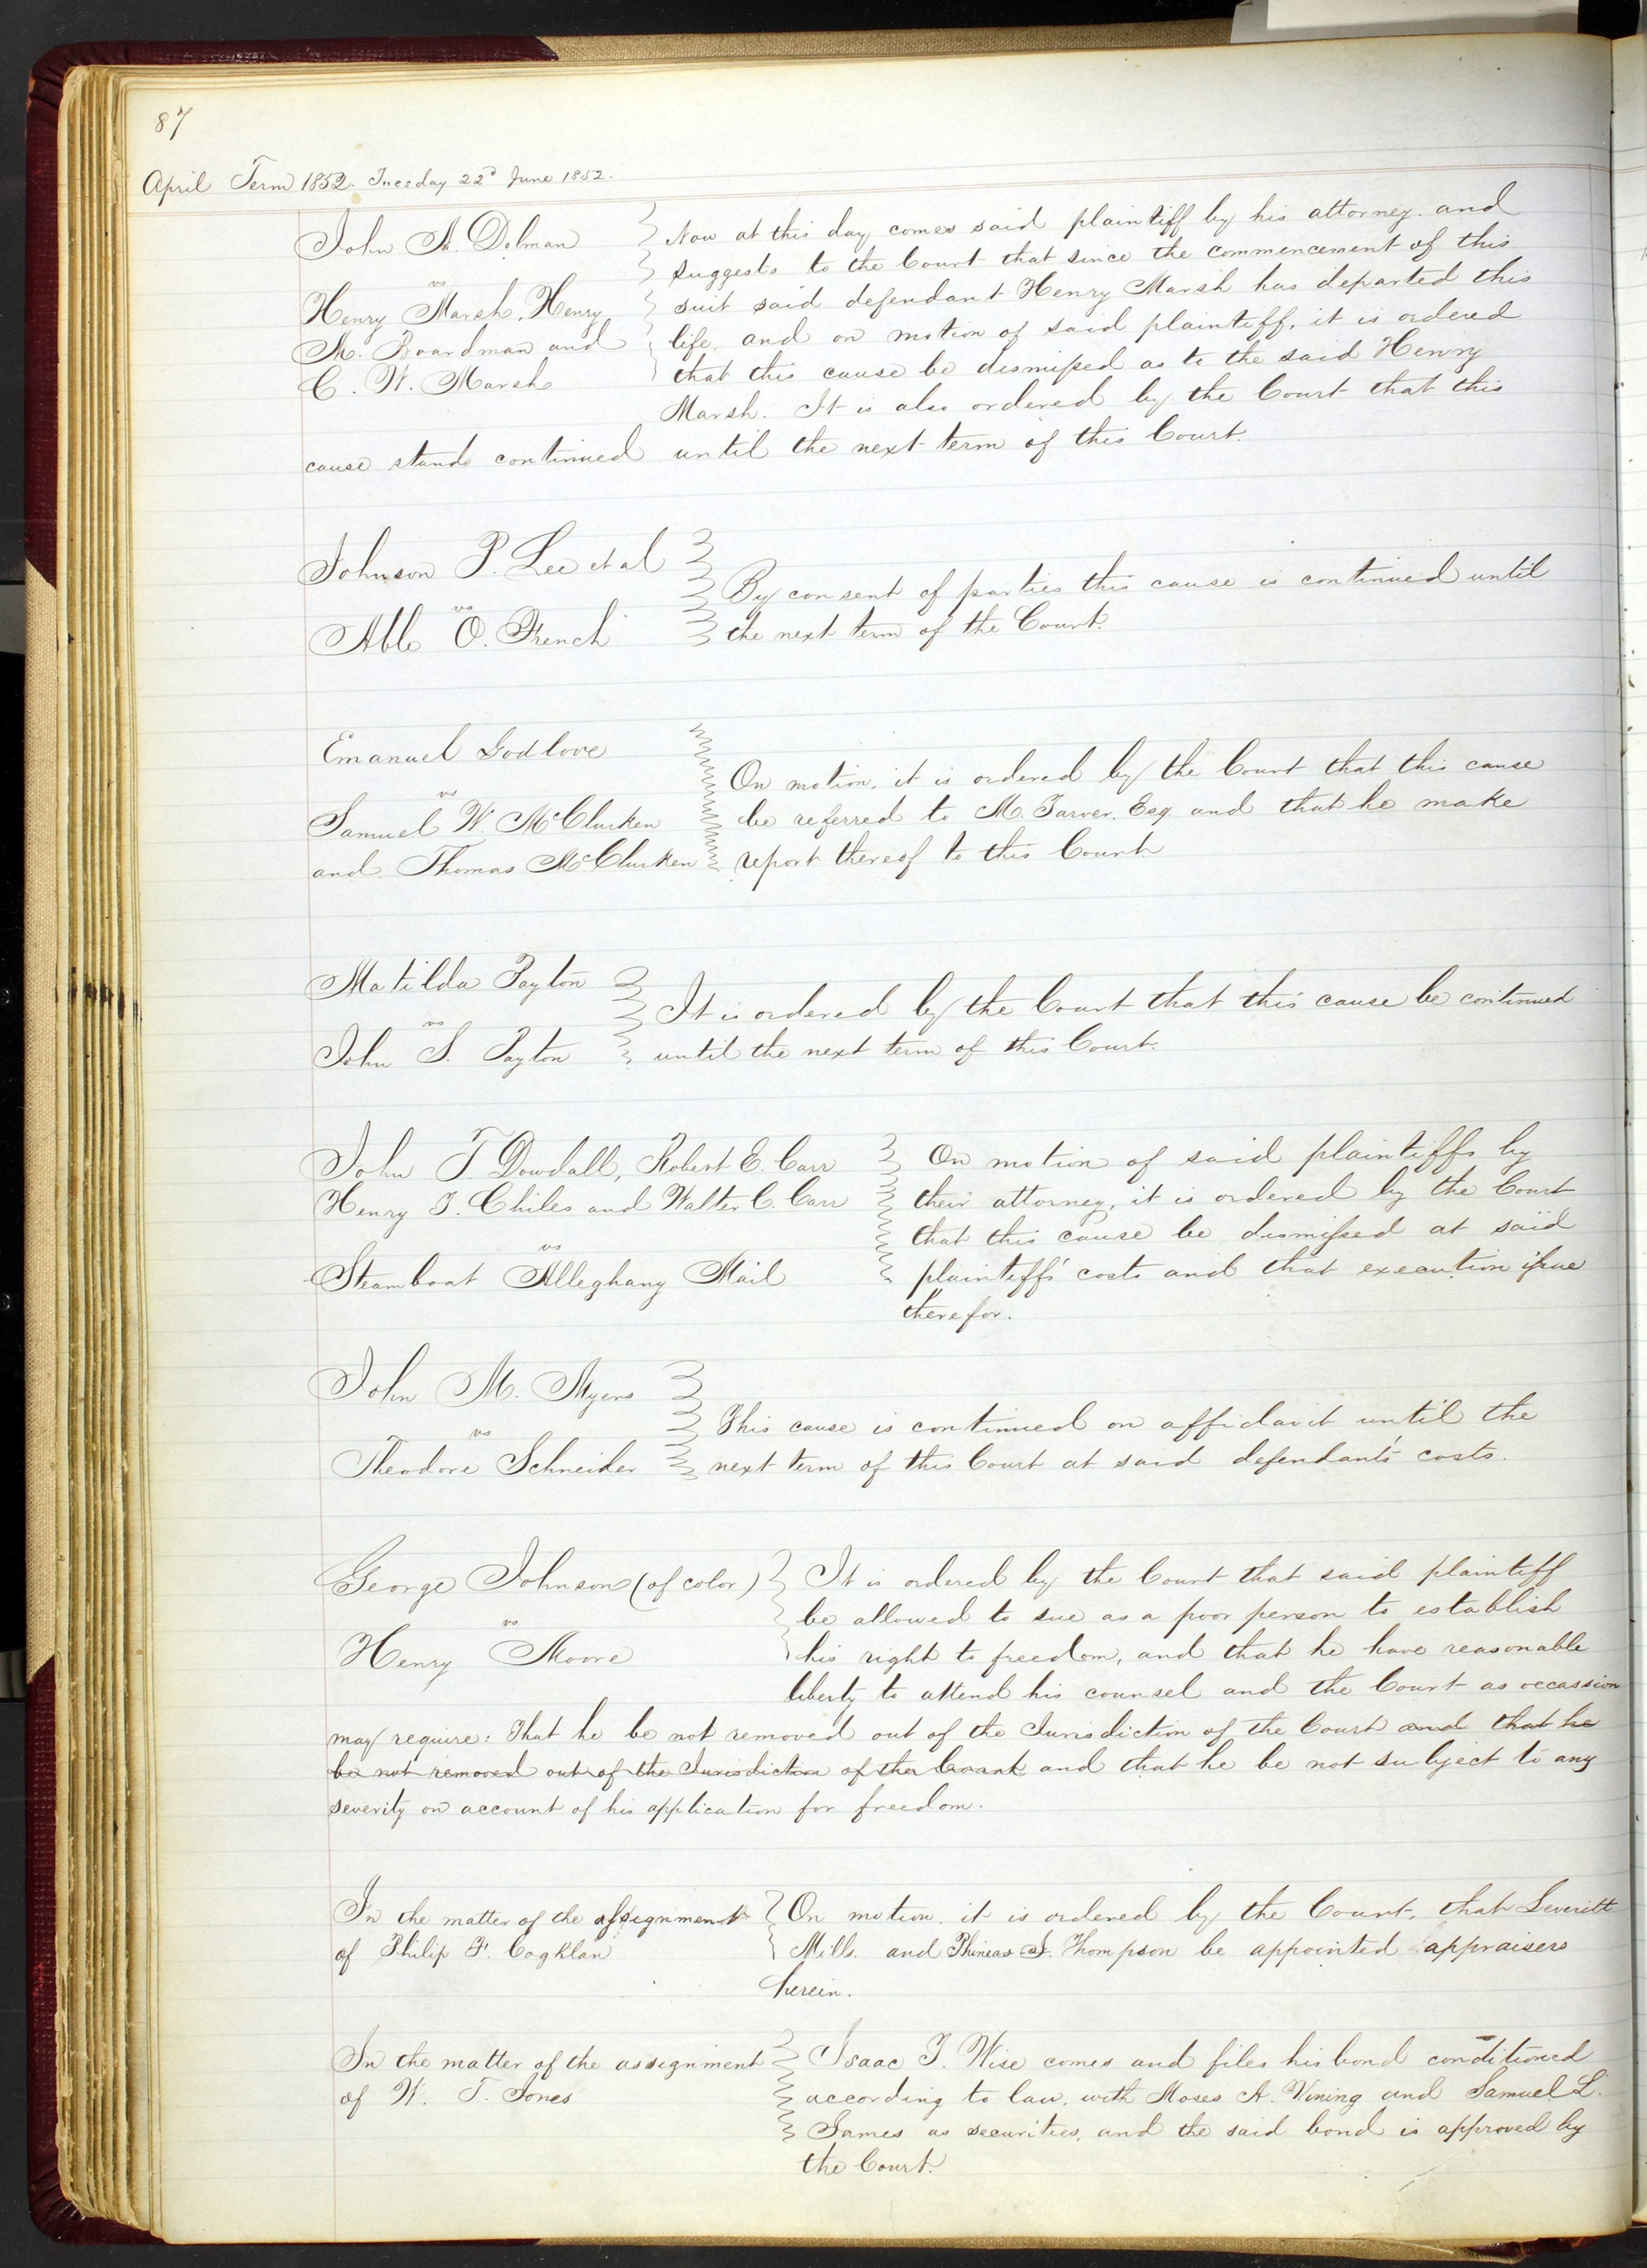 87
April Term 1852. Tuesday 22d June 1852.
John A. Dolman
vs
Henry Marsh, Henry
M. Boardman and
C. W. Marsh
Now at this day comes said plaintiff by his attorney. and
suggests to the Court that since the commencement of this
suit said defendant Henry Marsh has departed this
life, and on motion of said plaintiff, it is ordered
that this cause be dismissed as to the said Henry
Marsh. It is also ordered by the Court that this
cause stands continued until the next term of this Court.
Johnson P. Lee et al
vs
Able O. French
By consent of parties this cause is continued until
the next term of the Court.
Emanuel Godlove
vs
Samuel W. McClurken
and Thomas McClurken
On motion, it is ordered by the Court that this cause
be referred to M. Tarver. Esq. and that he make
report thereof to this Court
Matilda Payton
vs
John S. Payton
It is ordered by the Court that this cause be continued
until the next term of this Court.
John T. Dowdall, Robert E. Carr
Henry T. Chiles and Walter C. Carr
vs
Steamboat Alleghany Mail
On motion of said plaintiffs by
their attorney, it is ordered by the Court
that this cause be dismissed at said
plaintiffs' costs and that execution issue
therefor.
John M. Myers
vs
Theodore Schneider
This cause is continued on affidavit until the
next term of this Court at said defendant's costs.
George Johnson (of color)
vs
Henry Moore
It is ordered by the Court that said plaintiff
be allowed to sue as a poor person to establish
his right to freedom, and that he have reasonable
liberty to attend his counsel and the Court as occassion
may require: That he be not removed out of the Jurisdiction of the Court and that he
be not removed out of the Jurisdiction of the Court and that he be not subject to any
severity on account of his application for freedom.
In the matter of the assignment
of Philip F. Coghlan
On motion. it is ordered by the Court, that Leveritt
Mills. and Phineas S. Thompson be appointed appraisers
herein.
In the matter of the assignment
of W. T. Jones
Isaac T. Wise comes and files his bond conditioned
according to law, with Moses A. Vining and Samuel L.
James as securities, and the said bond is approved by
the Court.